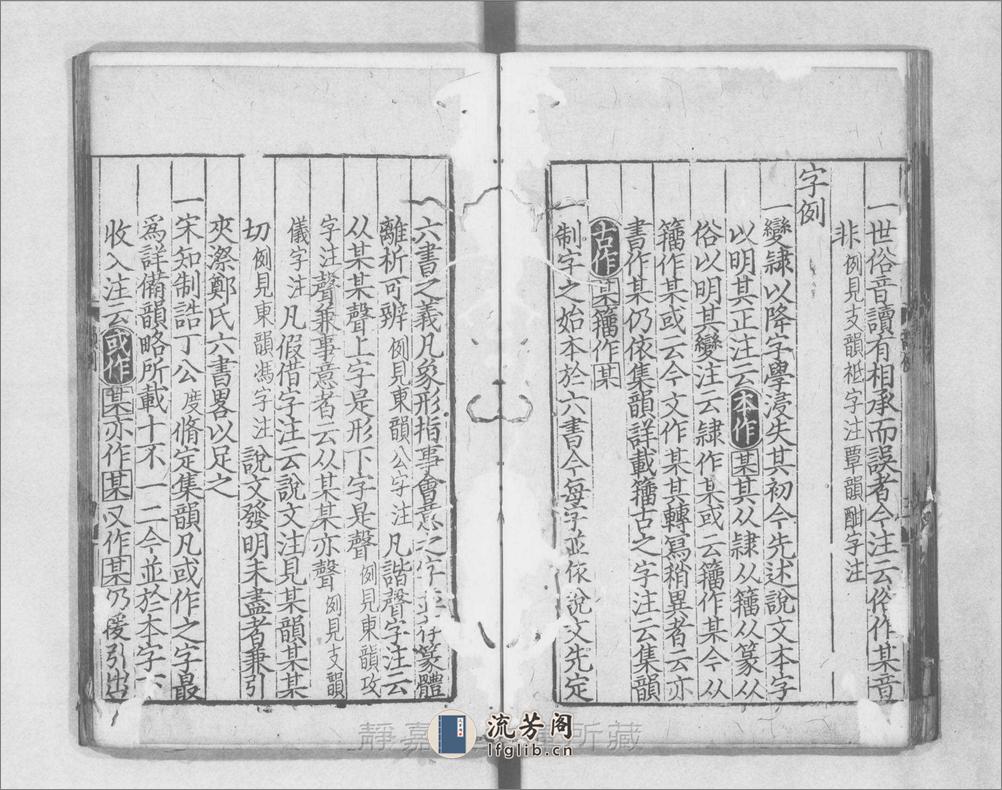 一世俗音讀有相承而誤者今注云俗作某音
非例見支韻祗字注覃韻酣字注
字例
一變隷以降字學浸失其初今先述說文本字
以明其正注云本作某其从隷从籒从篆从
俗以明其變注云隷作某或云籒作某今从
籒作某或云今文作某其轉寫稍異者云亦
書作某仍依集韻詳載籒古之字注云集韻
古作某籒作某
一制字之始本於六書今每字並依說文先定
一六書之義凡象形指事會意之字篆體
離析可辨例見東韻公字注凡諧聲字注云
从某某聲上字是形下字是聲例見東韻攻
字注聲兼事意者云从某某亦聲例見支韻
儀字注凡假借字注云說文注見某韻某某
切例見東韻馮字注說文發明未盡者兼引
夾漈鄭氏六書畧以足之
一宋知制誥丁公度脩定集韻凡或作之字最
爲詳備韻略所載十不一二今並於本字下
收入注云或作某亦作某又作某仍援引出
靜嘉 所藏
流芳阁
lfglib.cn